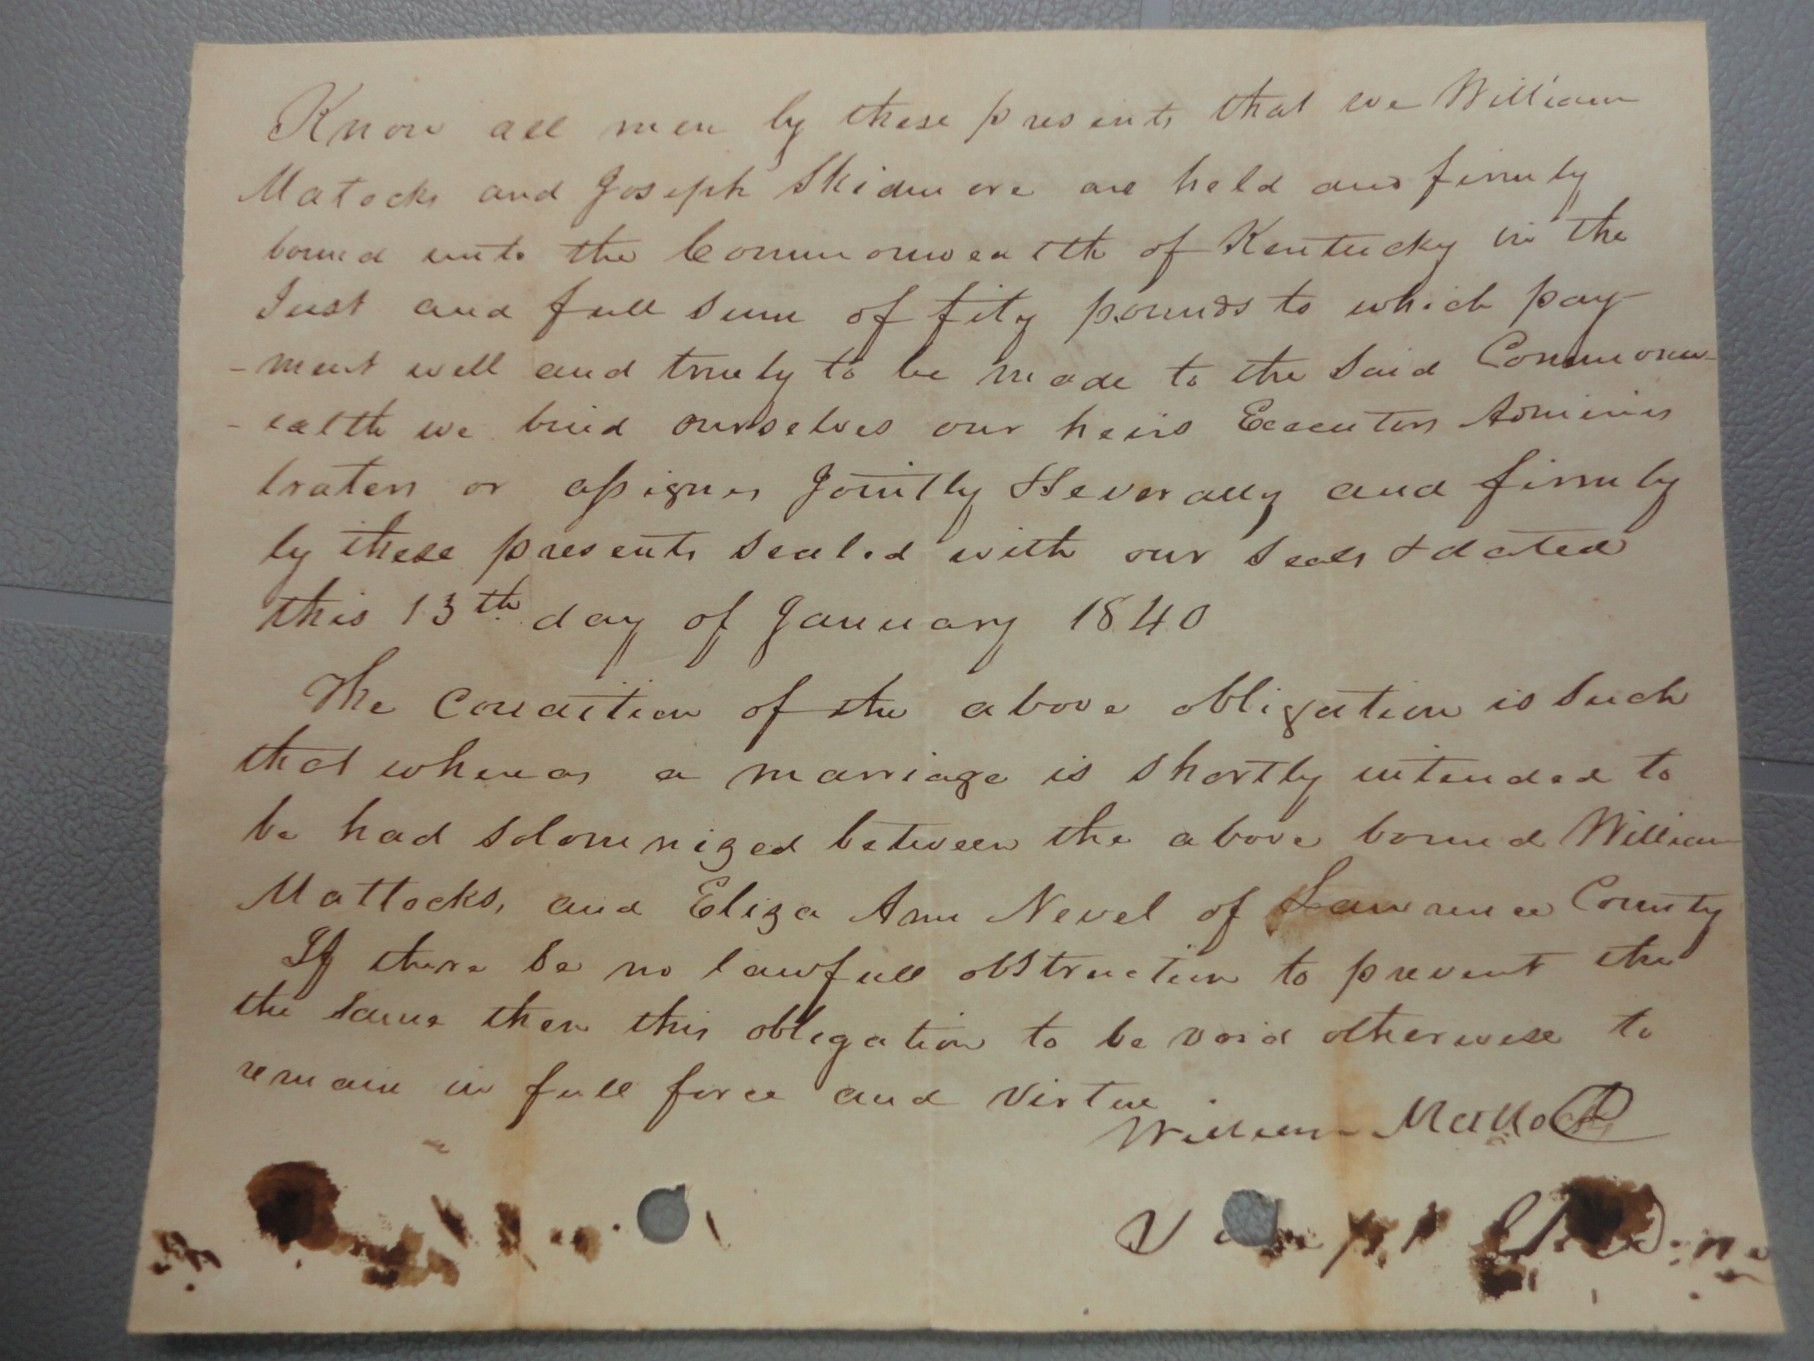 Know all men by these presents that we William
Matocks and Joseph Skidmore are held and firmly
bound unto the Commonwealth of Kentucky in the
Just and full sum of fity pounds to which pay
-ment well and truely to be made to the said Commonw-
-ealth we bind ourselves our heirs Executors Adminis
trators or assignes Jointly & Severally and firmly
by these presents sealed with our seals & dated
this 13th day of January 1840
The Condition of the above obligation is such
that whereas a marriage is shortly intended to
be had solomnized between the above bound William
Mattocks, and Eliza Ann Nevel of Lawrence County
If there be no lawfull obstruction to prevent the
the same then this obligation to be void otherwise to
remain in full force and virtue
William Mattock